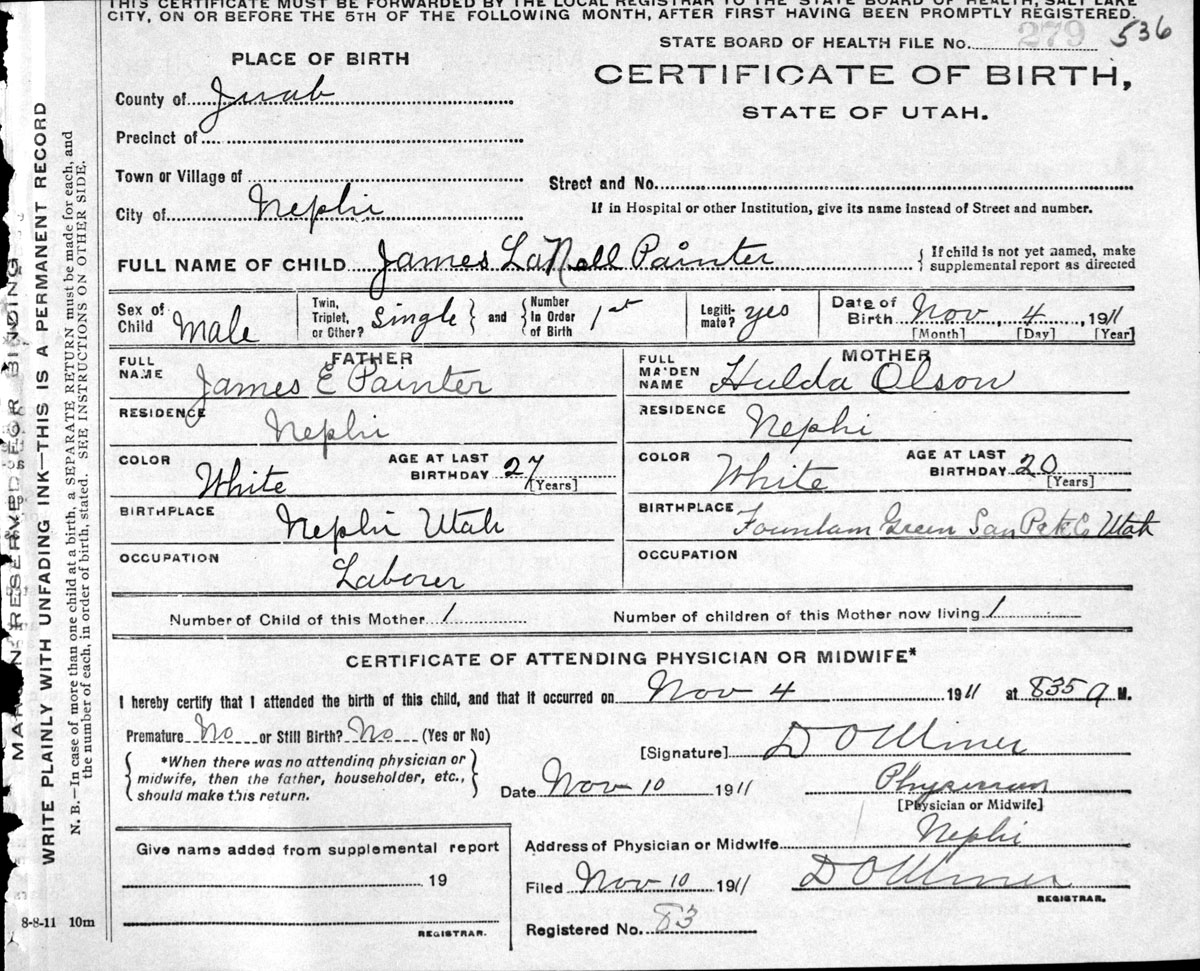 THIS CERTIFICATE MUST BE FORWARDED BY THE LOCAL REGISTRAR TO THE STATE BOARD OF HEALTH, SALT LAKE
CITY, ON OR BEFORE THE 5TH OF THE FOLLOWING MONTH, AFTER FIRST HAVING BEEN PROMPTLY REGISTERED.
STATE BOARD OF HEALTH FILE No. 279 536
PLACE OF BIRTH
CERTIFICATE OF BIRTH,
STATE OF UTAH.
County of Juab
Precinct of
Town or Village of
Street and No.
City of Nephi
If in Hospital or other Institution, give its name instead of Street and number.
FULL NAME OF CHILD James LaNell Painter
{ If child is not yet named, make
supplemental report as directed
Sex of Child Male
Twin, Triplet, or Other? Single } and { Number In Order of Birth 1st
Legiti-mate? yes
Date of Birth Nov 4, 1911
[Month] [Day] [Year]
FATHER
FULL NAME James E Painter
MOTHER
FULL MAIDEN NAME Hulda Olson
RESIDENCE Nephi
RESIDENCE Nephi
COLOR White
AGE AT LAST BIRTHDAY 27 [Years]
COLOR White
AGE AT LAST BIRTHDAY 20 [Years]
BIRTHPLACE Nephi Utah
BIRTHPLACE Fountain Green San Pete Co Utah
OCCUPATION Laborer
OCCUPATION
Number of Child of this Mother 1
Number of children of this Mother now living 1
CERTIFICATE OF ATTENDING PHYSICIAN OR MIDWIFE*
I hereby certify that I attended the birth of this child, and that it occurred on Nov 4 1911 at 835 a M.
Premature No or Still Birth? No (Yes or No)
[Signature]
*When there was no attending physician or
midwife, then the father, householder, etc.,
should make this return.
Date Nov 10 1911
Physician
[Physician or Midwife]
Give name added from supplemental report
19
REGISTRAR.
Address of Physician or Midwife Nephi
Filed Nov 10 1911
REGISTRAR.
Registered No. 83
8-8-11 10m
MARGIN RESERVED FOR BINDING
WRITE PLAINLY WITH UNFADING INK—THIS IS A PERMANENT RECORD
N. B.—In case of more than one child at a birth, a SEPARATE RETURN must be made for each, and
the number of each, in order of birth, stated. SEE INSTRUCTIONS ON OTHER SIDE.